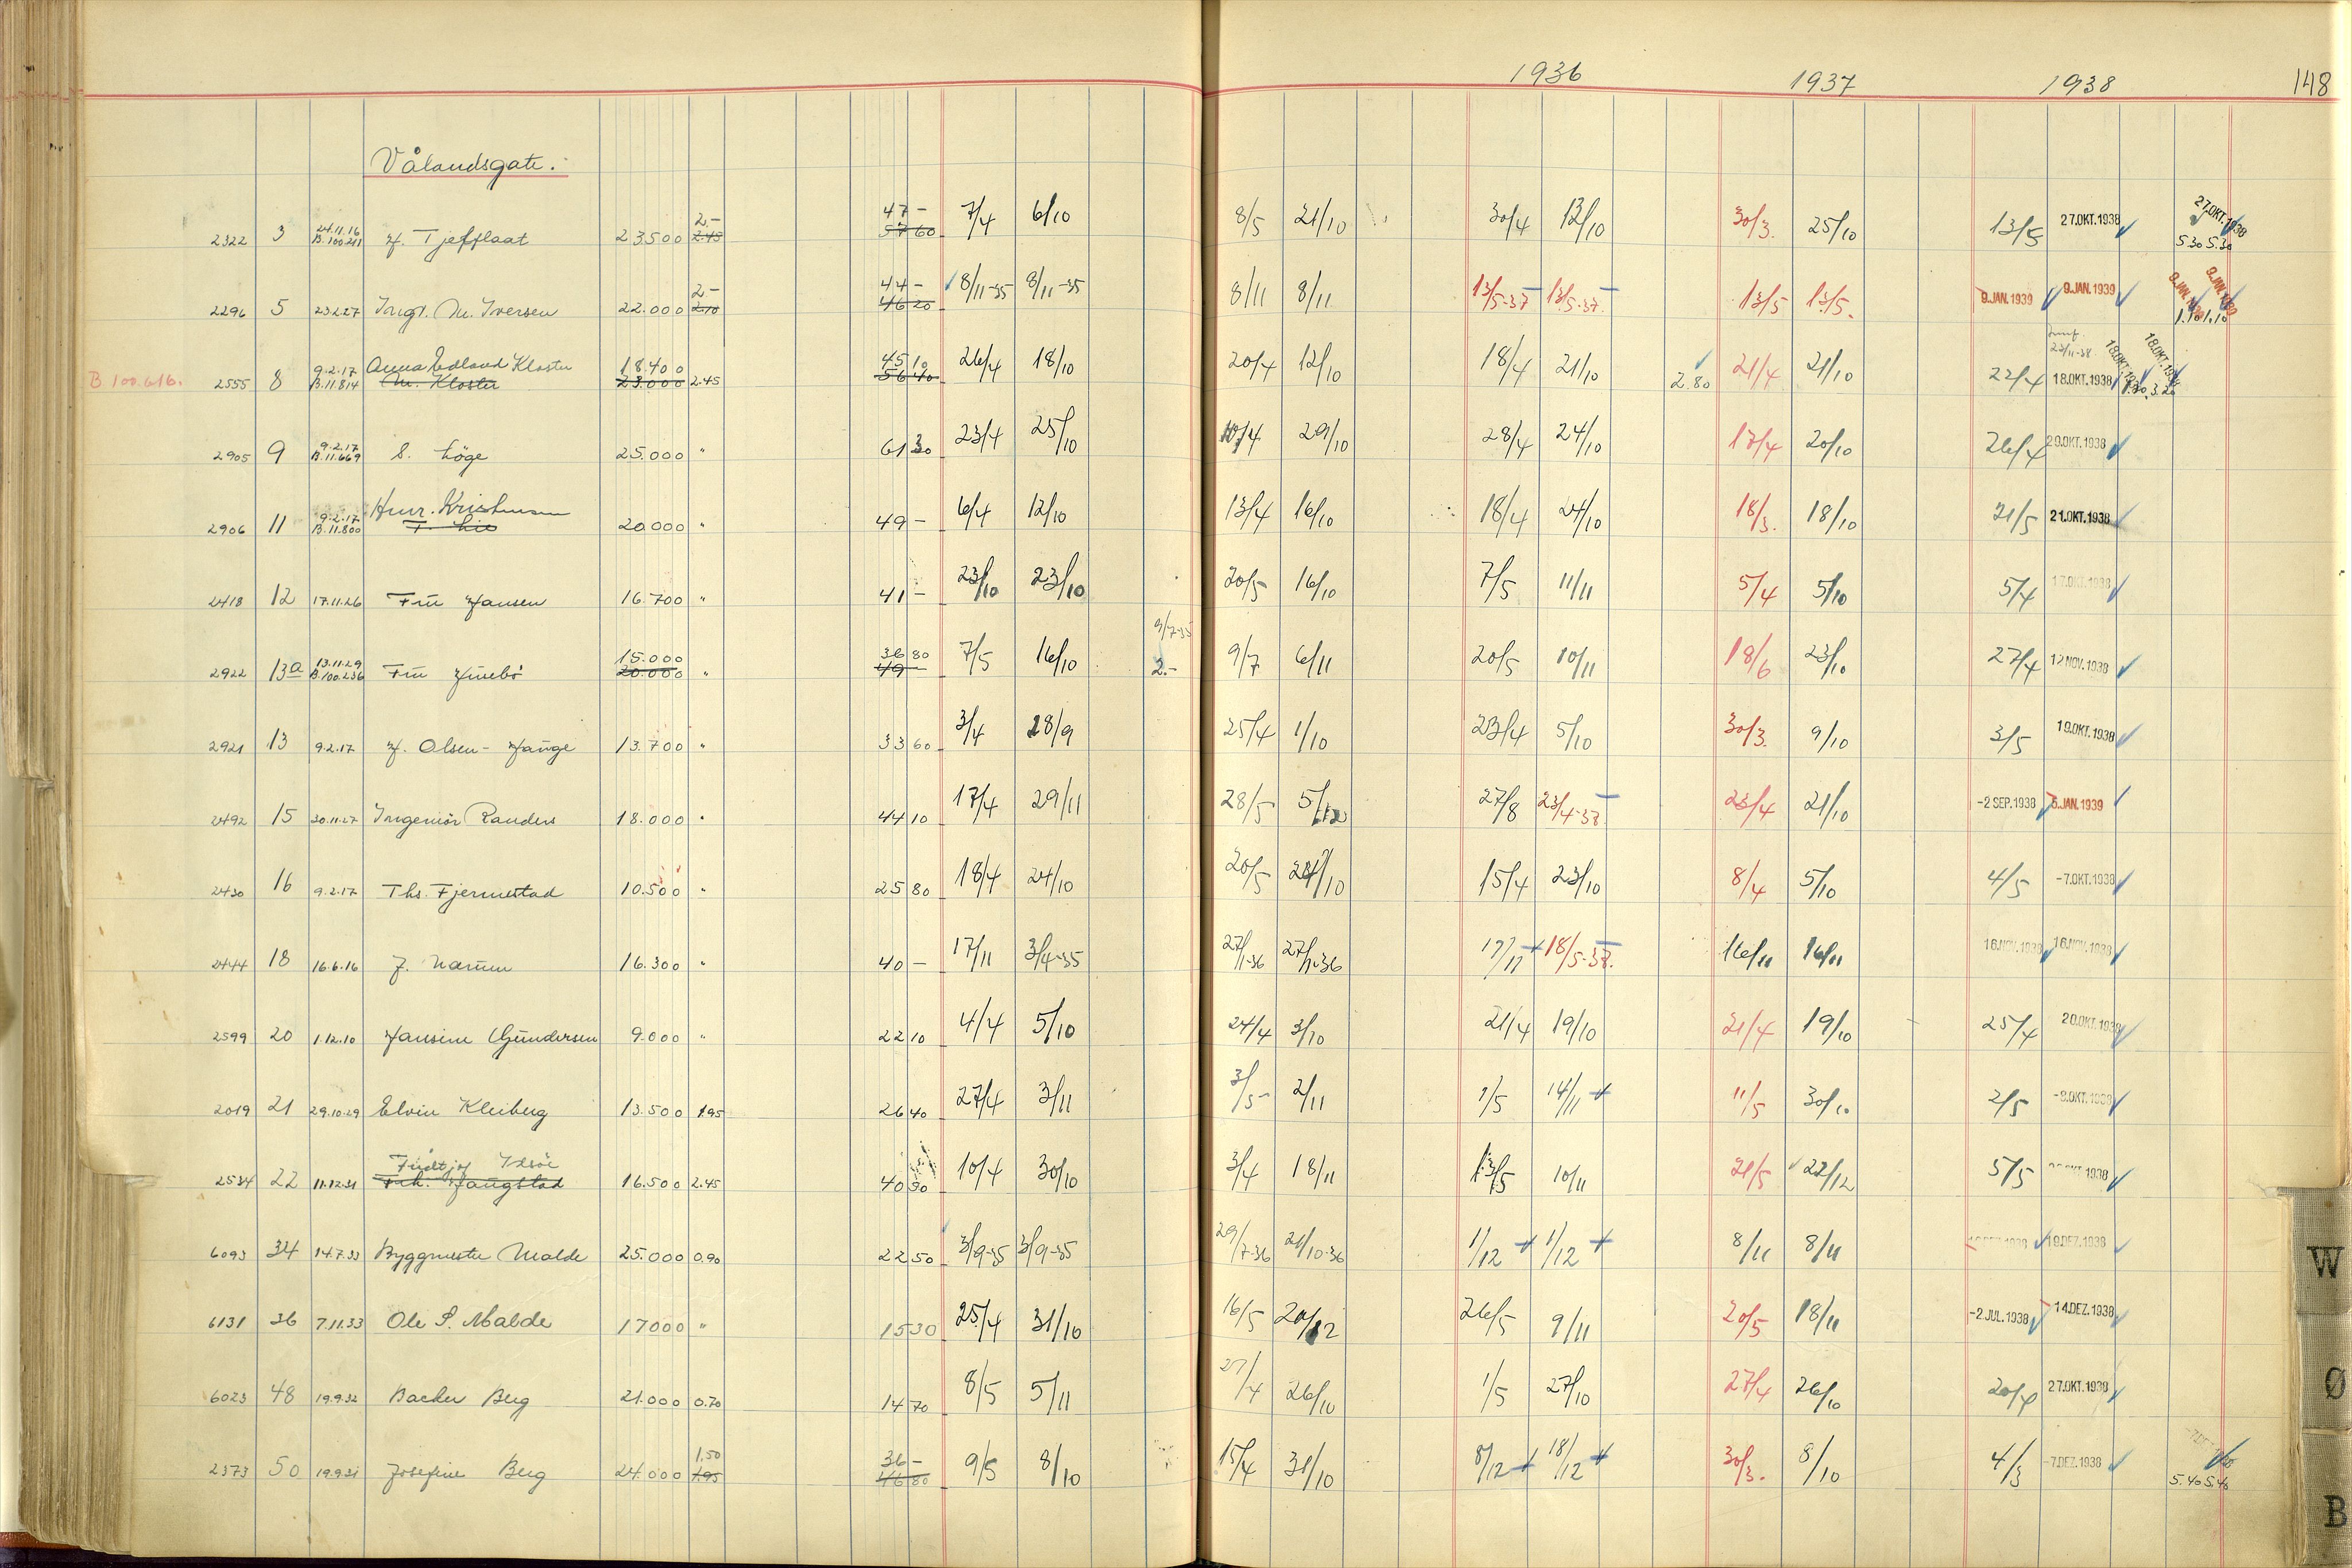 1936 1937 1938 148
Vålandsgate.
2322 3 24.11.16 B.100.211 H. Tjeflaat 23.500 2.- 2.45 47 - 57 60 7/4 6/10 8/5 21/10 30/4 12/10 30/3. 25/10 13/5 27.OKT.1938 27.OKT.1938 5.30 5.30
2296 5 23.2.27 Ingr. M. Iversen 22.000 2- 2.10 44 - 46 20 8/11-35 8/11-35 8/11 8/11 13/5-37 13/5-37. 13/5 13/5. 9.JAN.1939 9.JAN.1939 9.JAN.1939 9.JAN.1939 1.10 1.10
B 100.616. 2555 8 9.2.17 B.11.814 Anna Edland Kloster Kloster 18.400 23.000 2.45 45 10 56 40 26/4 18/10 20/4 12/10 18/4 21/10 2.80 21/4 21/10 22/4 23/11-38 18.OKT.1938 18.OKT.1938 18.OKT.1938
2905 9 9.2.17 B.11.669 S. Löge 25.000 " 61 30 23/4 25/10 10/4 29/10 28/4 24/10 17/4 20/10 26/4 20.OKT.1938
2906 11 9.2.17 B.11.800 Henr. Kristensen T. Lie 20000 " 49 - 6/4 12/10 13/4 16/10 18/4 24/10 18/3. 18/10 21/5 21.OKT.1938
2418 12 17.11.26 Fru Hansen 16.700 " 41 - 23/10 23/10 20/5 16/10 7/5 11/11 5/4 5/10 5/4 17.OKT.1938
2922 13a 13.11.29 B.100.236 Fru Hinebö 15.000 20.000 " 36 80 49 - 7/5 16/10 9/7-35 2.- 9/7 6/11 20/5 10/11 18/6 23/10 27/4 12 NOV.1938
2921 13 9.2.17 H. Olsen-Hauge 13.700 " 33 60 3/4 28/9 25/4 1/10 23/4 5/10 30/3. 9/10 3/5 19.OKT.1938
2492 15 30.11.27 Ingeniör Randers 18.000 " 44 10 17/4 29/11 28/5 5/12 27/8 23/4-37. 23/4 21/10 -2 SEP.1938 5.JAN.1939
2430 16 9.2.17 Ths. Fjermestad 10.500 " 25 80 18/4 24/10 20/5 24/10 15/4 23/10 8/4 5/10 4/5 -7.OKT.1938
2444 18 16.6.16 J. Narum 16.300 " 40 - 17/11 3/4-35 27/11-36 27/11-36 17/11 18/5-37. 16/11 16/11 16.NOV.1938 16.NOV.1938
2599 20 1.12.10 Hansine Gundersen 9.000 " 22 10 4/4 5/10 24/4 3/10 21/4 19/10 21/4 19/10 25/4 20.OKT.1938
2019 21 29.10.29 Elvin Kleiberg 13.500 1.95 26 40 27/4 3/11 3/5 2/11 1/5 14/11 11/5 30/10 2/5 -8.OKT.1938
2534 22 11.12.31 Haugstad 16.500 2.45 40 30 10/4 30/10 3/4 18/11 13/5 10/11 21/5 22/12 5/5 OKT.1938
6093 34 14.7.33 Byggmester Malde 25.000 0.90 22 50 3/9-35 3/9-35 29/7-36 21/10-36 1/12 1/12 8/11 8/11 1938 19.DEZ.1938
6131 36 7.11.33 Ole S. Malde 17000 " 15 30 25/4 31/10 16/5 20/12 26/5 9/11 20/5 18/11 -2.JUL.1938 14.DEZ.1938
6023 48 19.9.32 Backer Berg 21.000 0.70 14 70 8/5 5/11 27/4 26/10 1/5 27/10 27/4 26/10 20/4 27.OKT.1938
2573 50 19.9.31 Josefine Berg 24.000 1.50 1.95 36 - 46 80 9/5 8/10 15/4 31/10 8/12 18/12 30/3. 8/10 4/3 -7.DEZ.1938 5.40 5.40
W
Ø
B